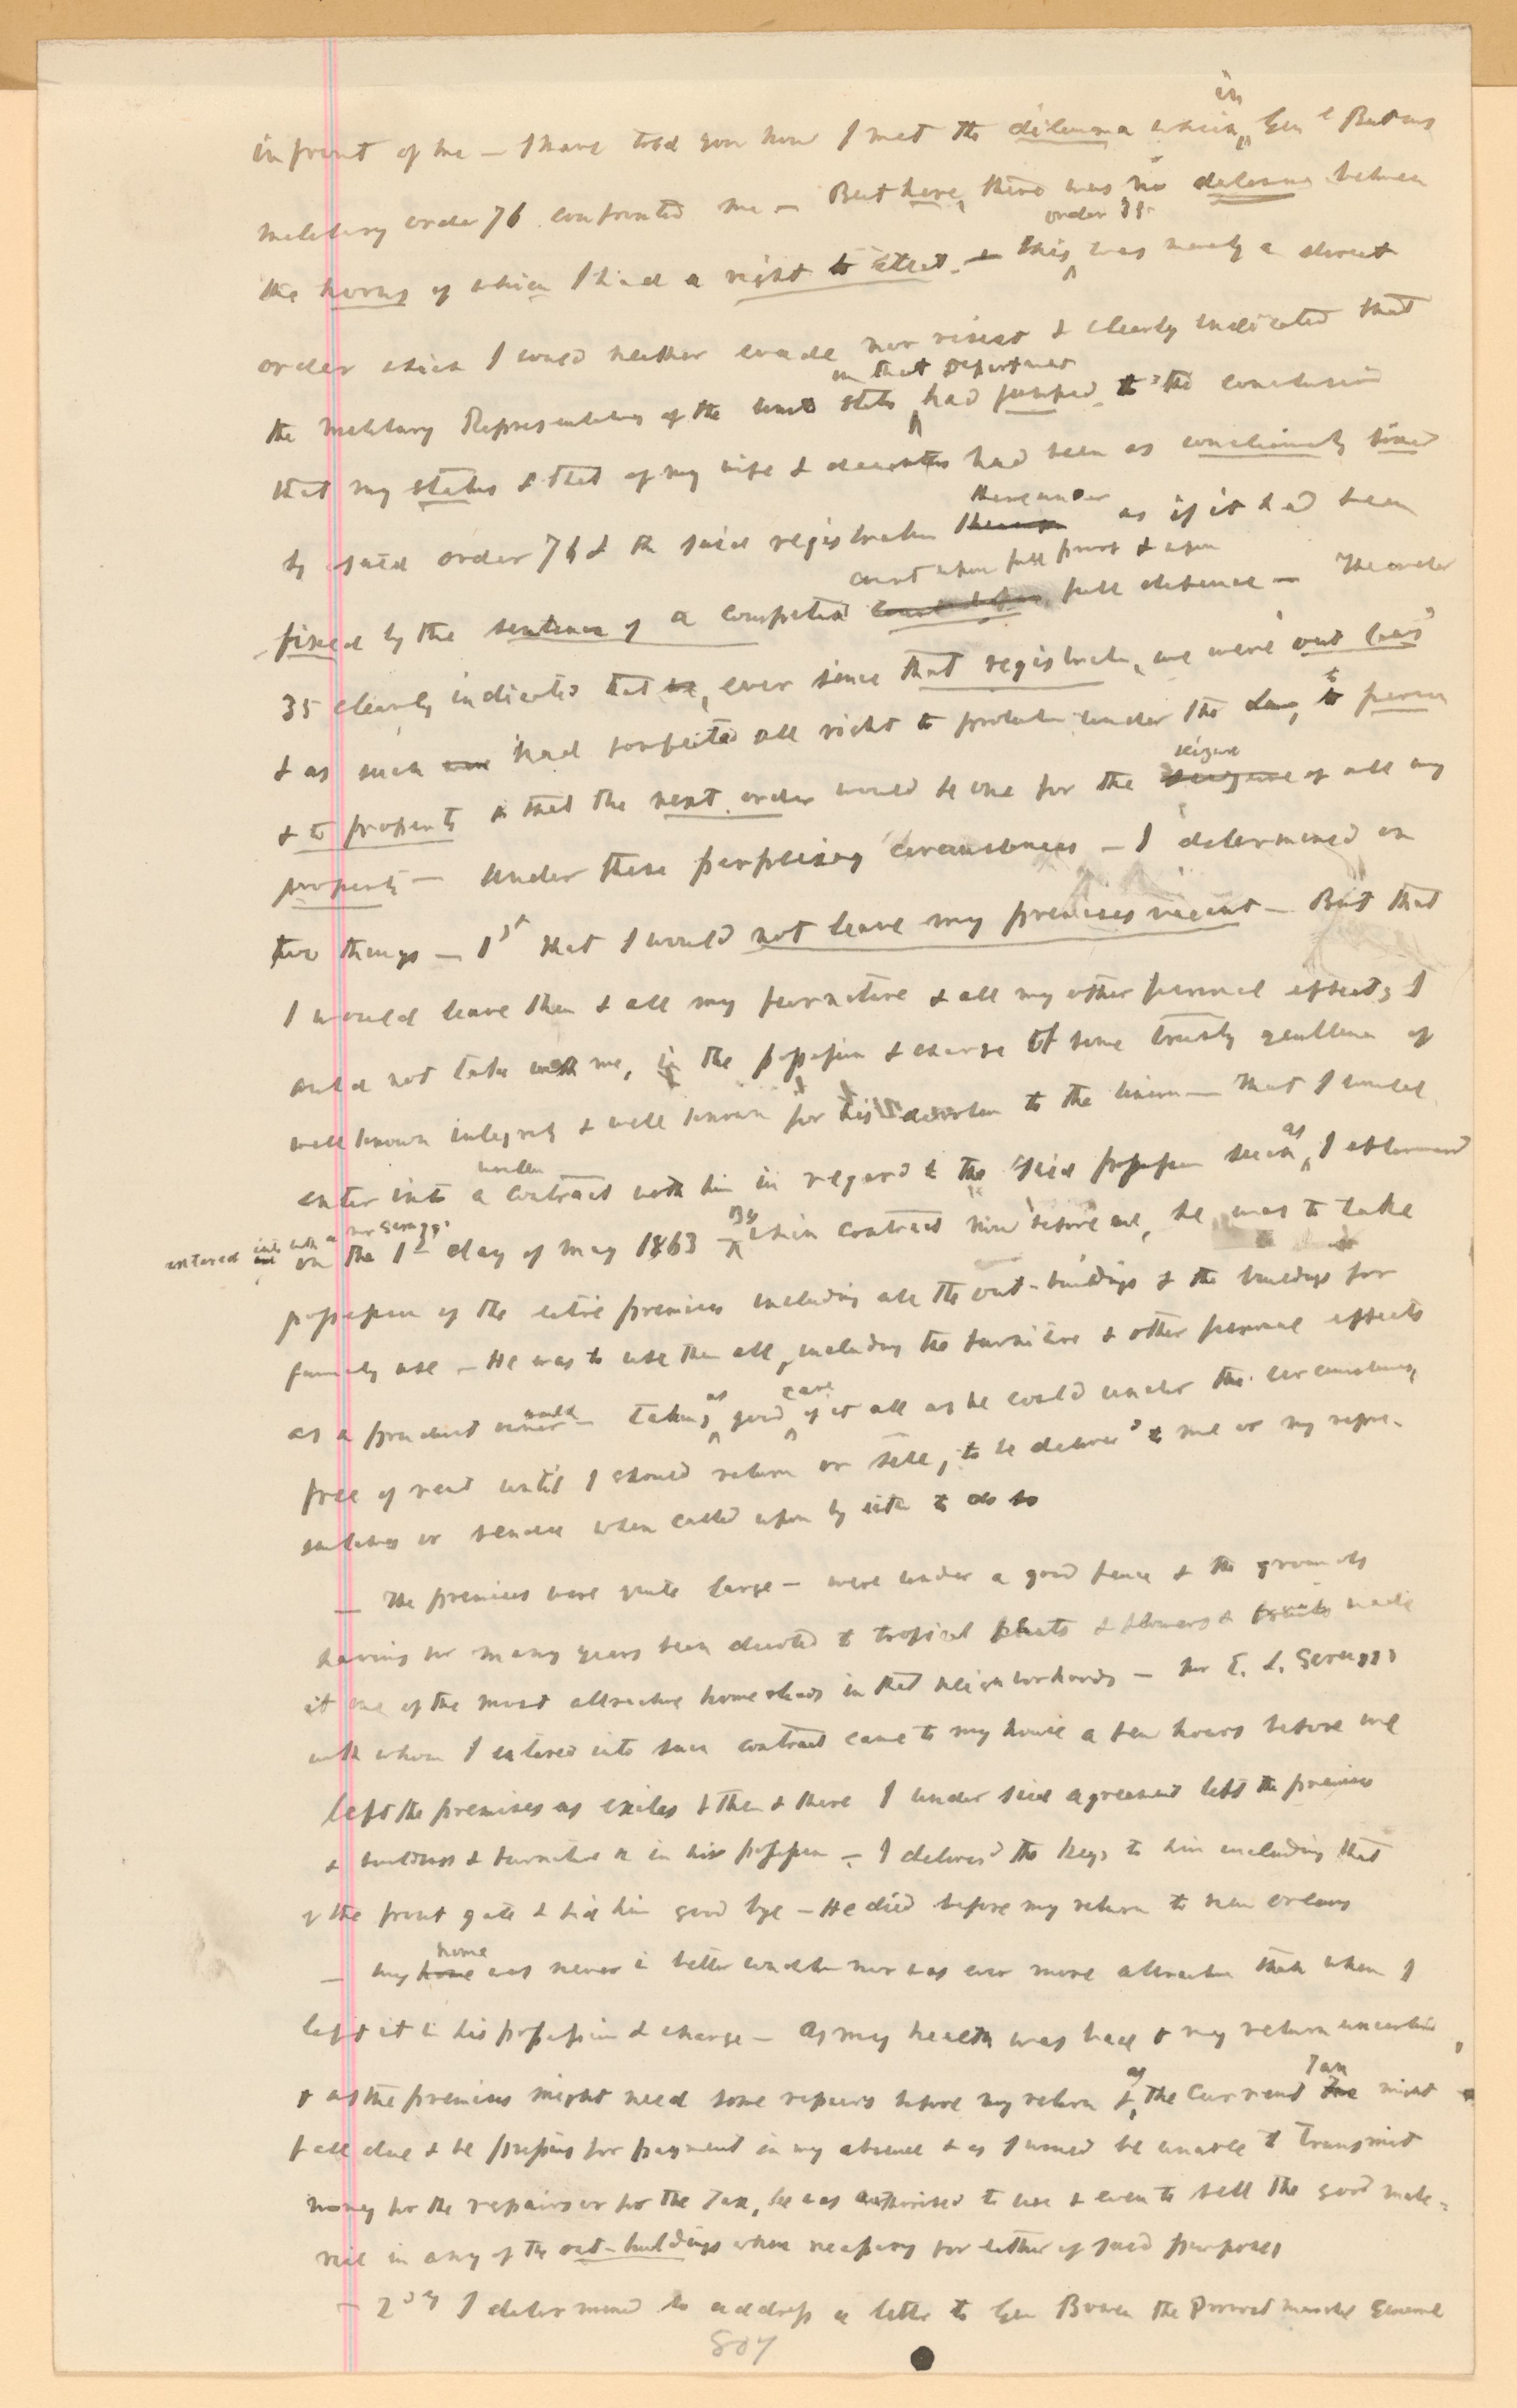 in
in front of me — I have told you how I met the dilemma which Gen'l Butlers
military order 76 confronted me — But here, there was no dilemma between
order 35
the horns of which I had a right to elect — this was merely a direct
order which I could neither evade nor resist & clearly indicated that
in that department
the military Representatives of the United States had jumped to the conclusion
that my status & that of my wife & daughter had been as conclusively fixed
thereunder
by said order 76 & the said registration as if it had been
court upon full proof & upon
fixed by the sentence of a competent full defence — The order
35 clearly indicated that ever since that registration, we were out laws
to
& as such had forfeited all right to protection under the law, to person
seizure
& to property & that the next order would be one for the seizure of all my
property — Under these perplexing circumstances — I determined on
two things — 1st that I would not leave my premises vacant — But that
I would leave them & all my furniture & all my other personal effects I
could not take with me, in the possession & charge of some trusty gentleman of
well known integrity & well known for his devotion to the Union — that I would
written as
enter into a contract with him in regard to the said possession such I afterward
entered into with a Mr Scruggs By
on the 1st day of May 1863 which contract now before me, he was to take
possession of the entire premises including all the out-buildings & the buildings for
family use — He was to use them all, including the furniture & other personal effects
would as care
as a prudent owner — taking good of it all as he could under the circumstances,
free of rent until I should return or sell, to be delivered to me or my repre-
sentatives or vendee when called upon by either to do so
— The premises were quite large — were under a good fence & the grounds
having for many years been devoted to tropical plants & flowers & fruits made
it one of the most attractive homesteads in that neighborhood — Mr E. L. Scruggs
with whom I entered into such contract came to my house a few hours before we
left the premises as exiles & then & there I under said agreement left the premises
& buildings & furniture in his possession — I delivered the keys to him including that
of the front gate & bid him good bye — He died before my return to New Orleans
home
— my was never in better condition nor was ever more attractive than when I
left it in his possession & charge — As my health was bad & my return uncertain,
as Tax
& as the premises might need some repairs before my return & the current might
fall due & be pressing for payment in my absence & as I would be unable to transmit
money for the repairs or for the Tax, he was authorised to use & even to sell the good mate-
rial in any of the out-buildings when necessary for either of said purposes
— 2ndly I determined to address a letter to Gen Bowen the Provost Marshal General
804